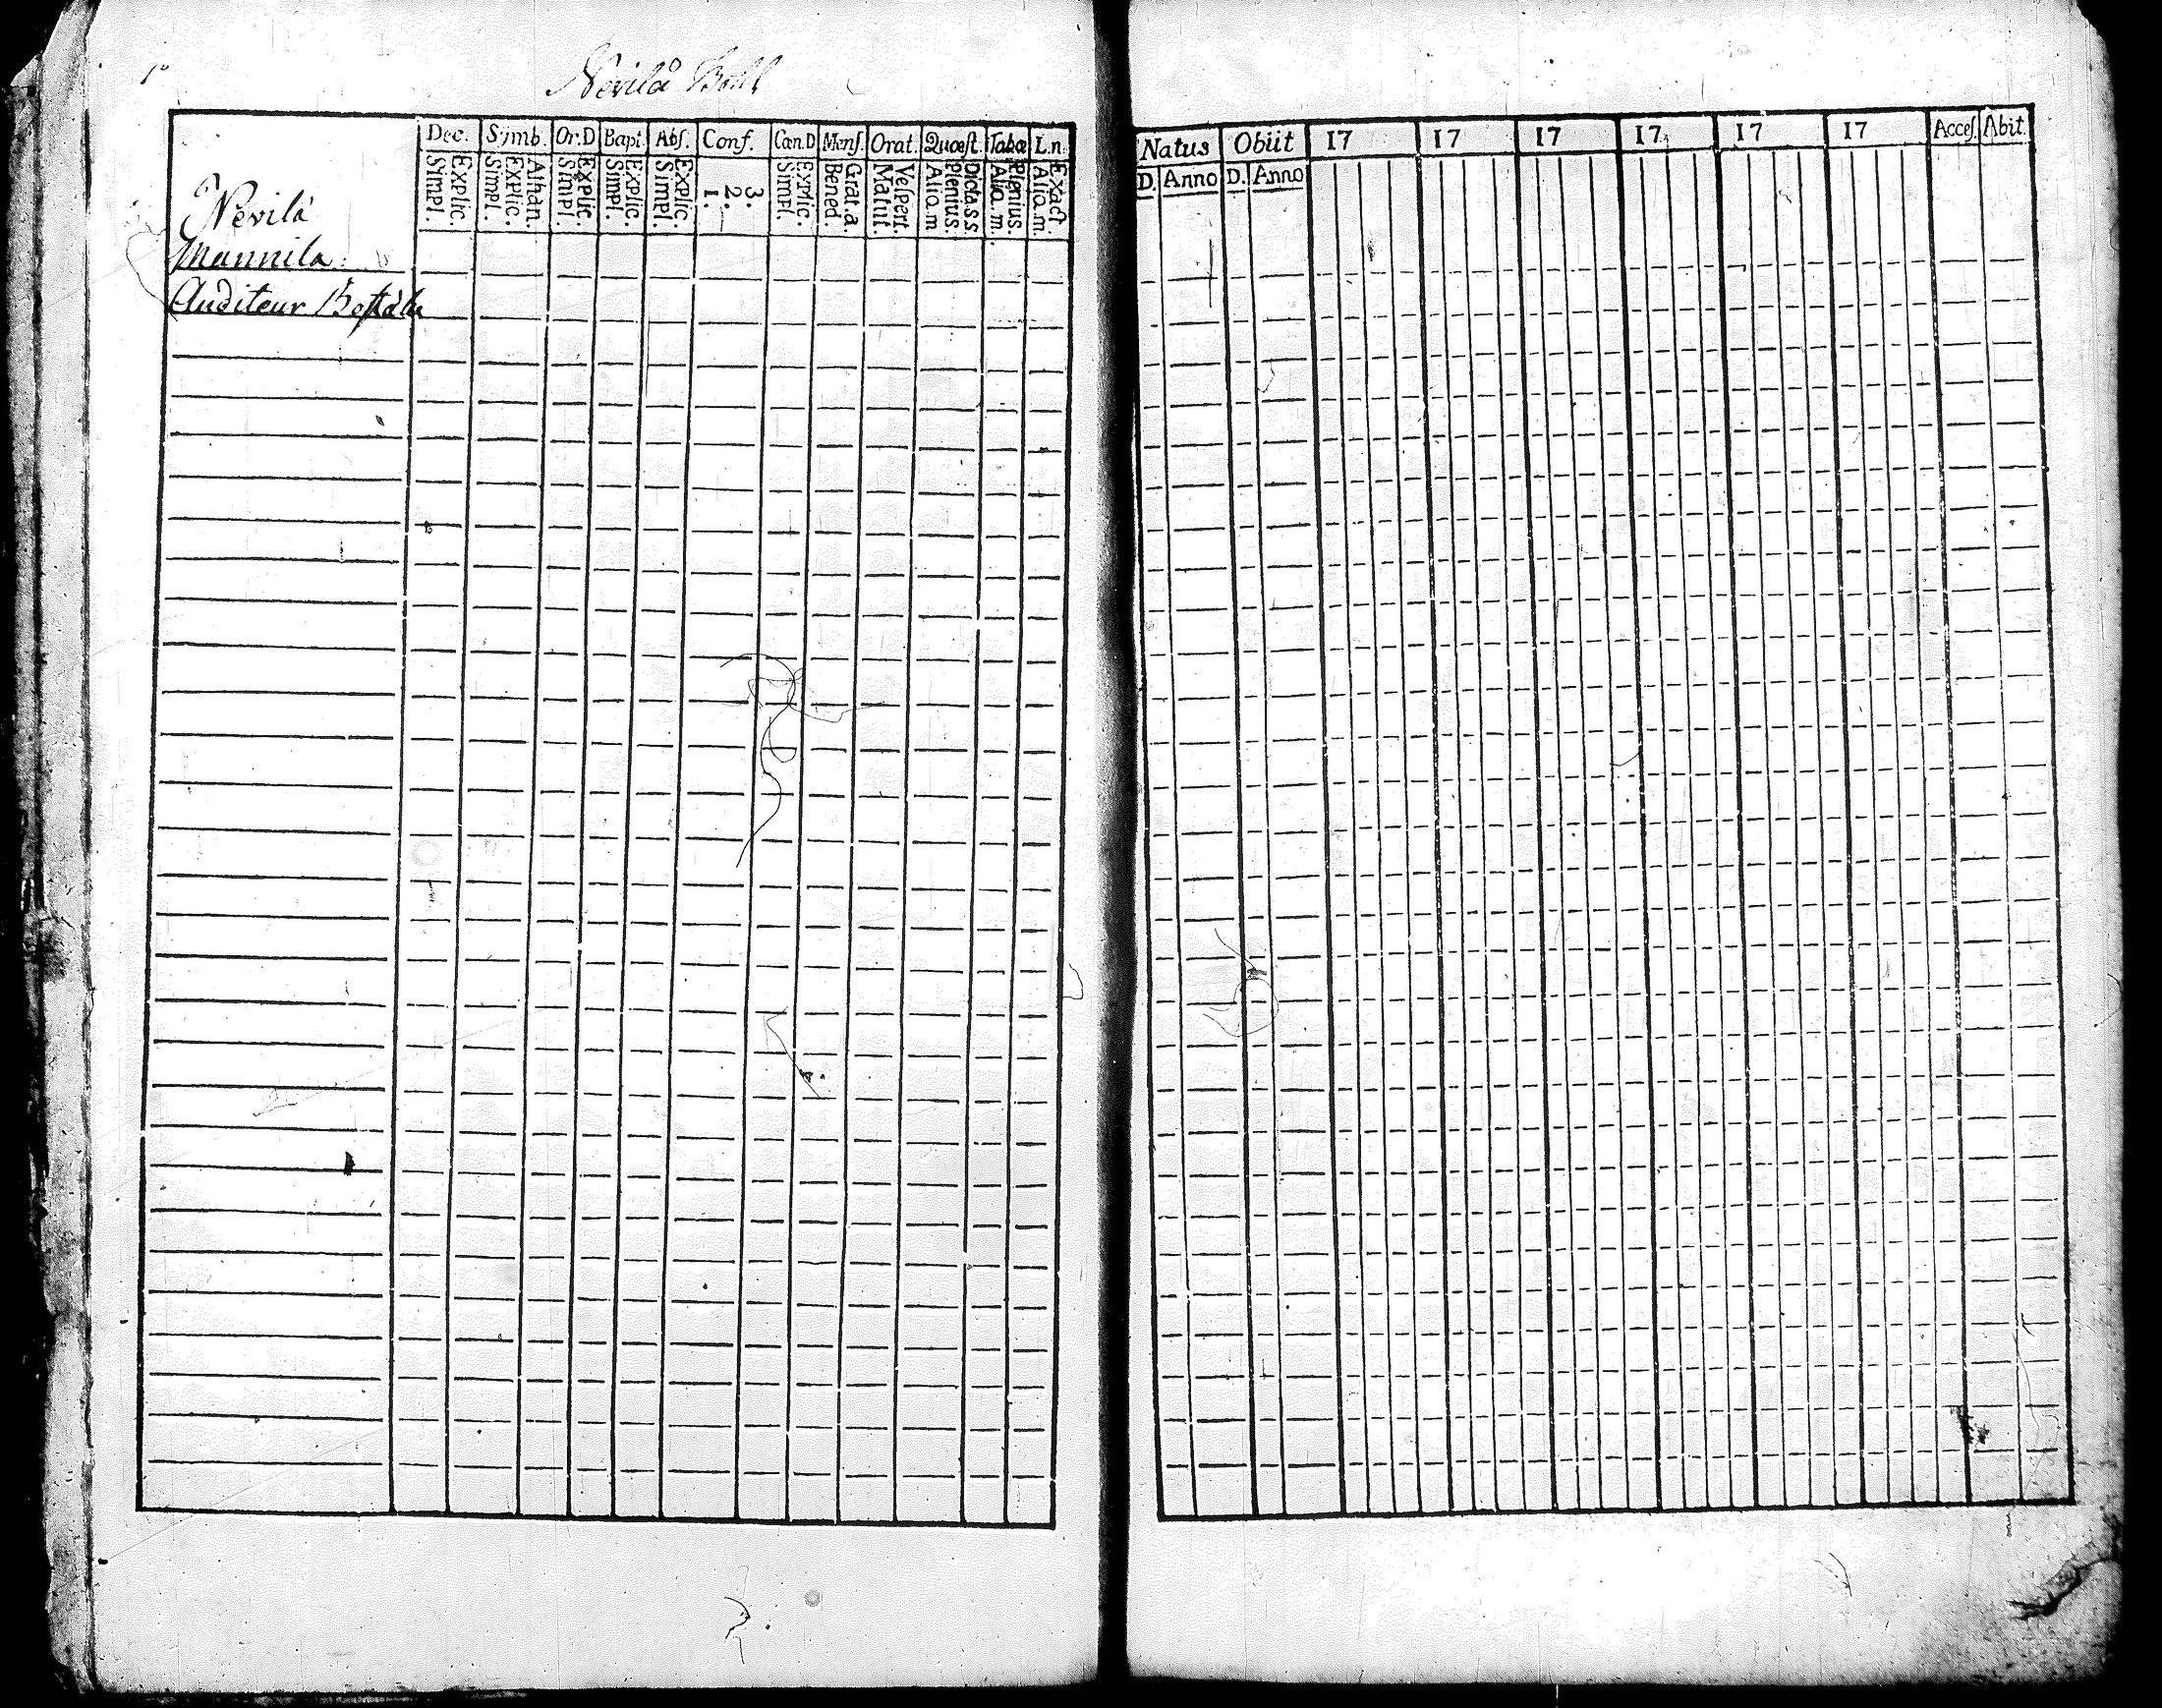 Nevilä Bohl
Dec. Sijmb. Or.D Bapt. Abs. Conf. Cæn.D Mens. Orat. Quæst. Tabæ L.n.
Simpl. Explic. Simpl. Explic. Athan. Simpl. Explic. Simpl. Explic. Simpl. Explic. 1. 2. 3. Simpl. Explic. Bened. Grat.a. Matut. Vespert. Alia.m Plenius. Dicta.s.s Alia.m. Plenius. Alia.m. Exact.
Nevilä
Mannila
Auditeur
Natus Obiit 17 17 17 17 17 17 Acces. Abit.
D. Anno D. Anno